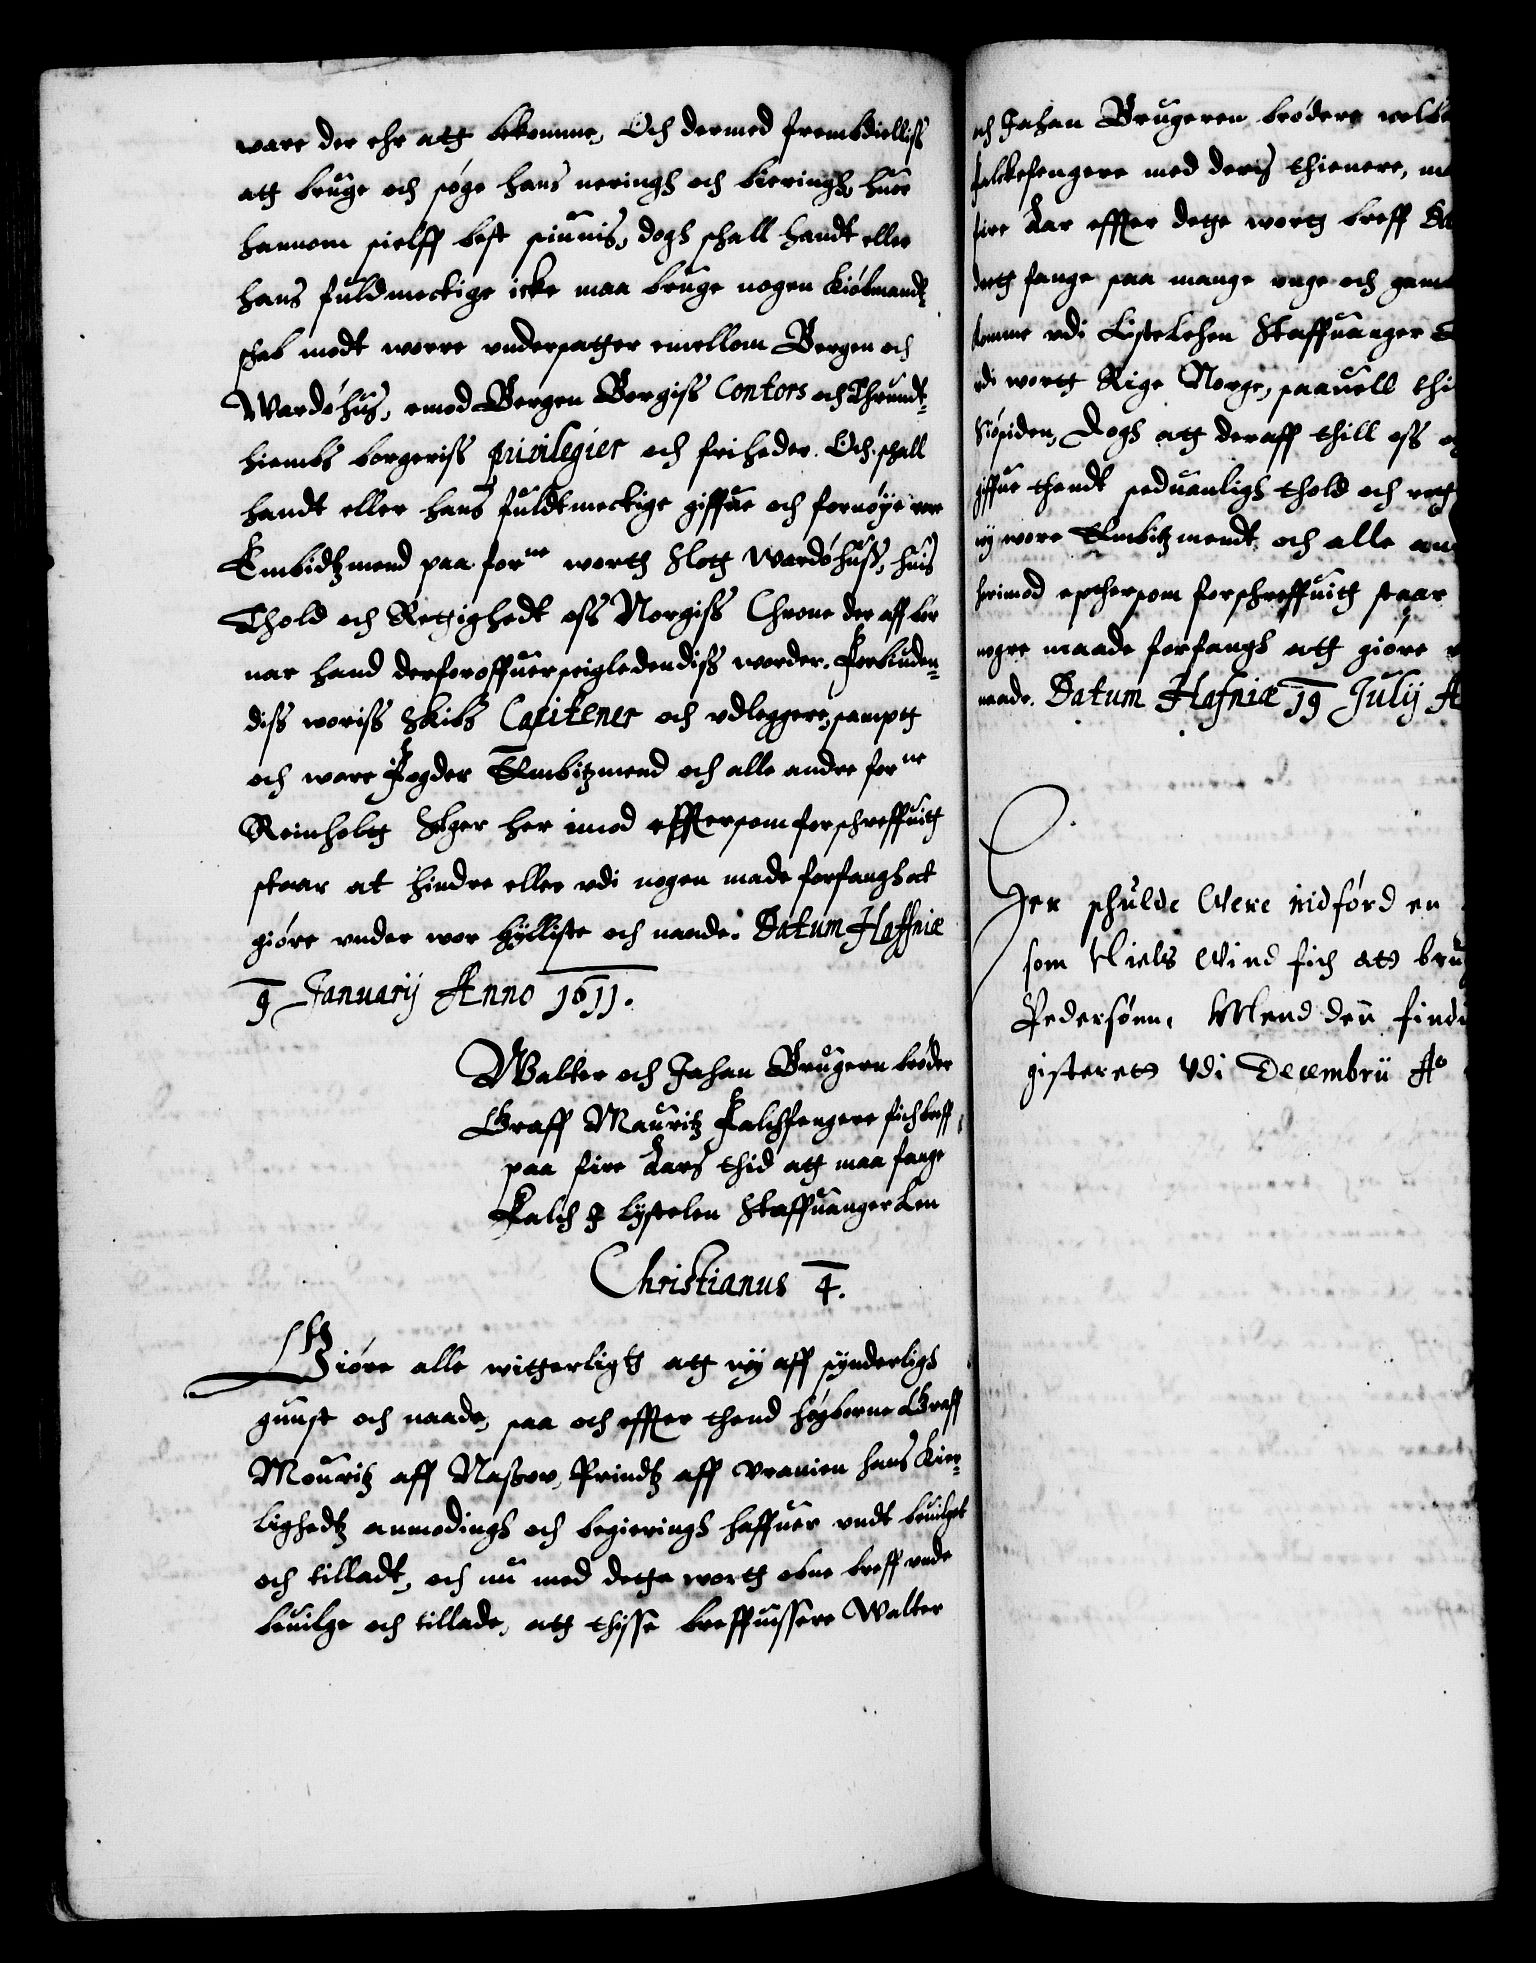 ware der ehr att bekomme, Och dermed frembdieliss
att bruge och søge hans neringh och bieringh, huor
hannom sielff best siunis, dogh schall handt eller
hans fuldmectige icke maa bruge nogen kiøbmandt
schab modt worre undersatter emellom Bergen och
Wardøhus, emod Bergen Borgiss Contors och Thrundt-
hiembs borgeriss privilegier och friheder. Och schall
handt eller hans fuldtmectige giffue och fornøye vor
Embidtzmend paa forne wortt Slott Wardøhuss, huis
Thold och Rettighedt oss Norgiss Chrone der aff bør
naar hand derforoffuer seigledendiss worder. Forbiuden-
diss woriss Skibs Capitener och udleggere, sampt
och wore Fogder Embitzmend och alle andre forne
Reinholtt her imod effter som forschreffuitt
staar at hindre eller udi nogen made forfangh at
giøre under wor hylliste och naade. Datum Haffniæ
9 Januarij Anno 1611.
Walter och Jahan Brugern brøder
Graff Mauritz Falchfengere fich breff
paa fire Aars thid att maa fange
Falch I Lystelen Staffuanger Len
Christianus 4.
Giøre alle witterligt att wy aff synderligh
gunst och naade, saa och effter thend høyborne Graff
Mouritz aff Nassov, Prindtz aff Uranien hans Kier-
lighedtz anmodingh och begieringh haffuer undt beuilget
och tilladt, och nu med dette wortt obne breff unde
beuilge och tillade, att thisse breffuissere Walter
och Jahan Brugeren brødere
falkefengere med deris thienere,
fire Aar effter dette wortt breff
fange saa mange unge och
komme udi Liste Lehen Staffuanger
udi wortt Rige Norge, saauell
Dogh att deraff thill oss
giffue thendt seduanligh thold och
wy wore Embitzmendt och alle
herimod epthersom forschreffuitt staar
nogre maade forfangh att giøre
naade. Datum Hafniæ 19 Julij
Her schulde Were indførd en
som Niels Wind fich att
Pedersønn. Mend den
gisterett Udi Decembrii Ao